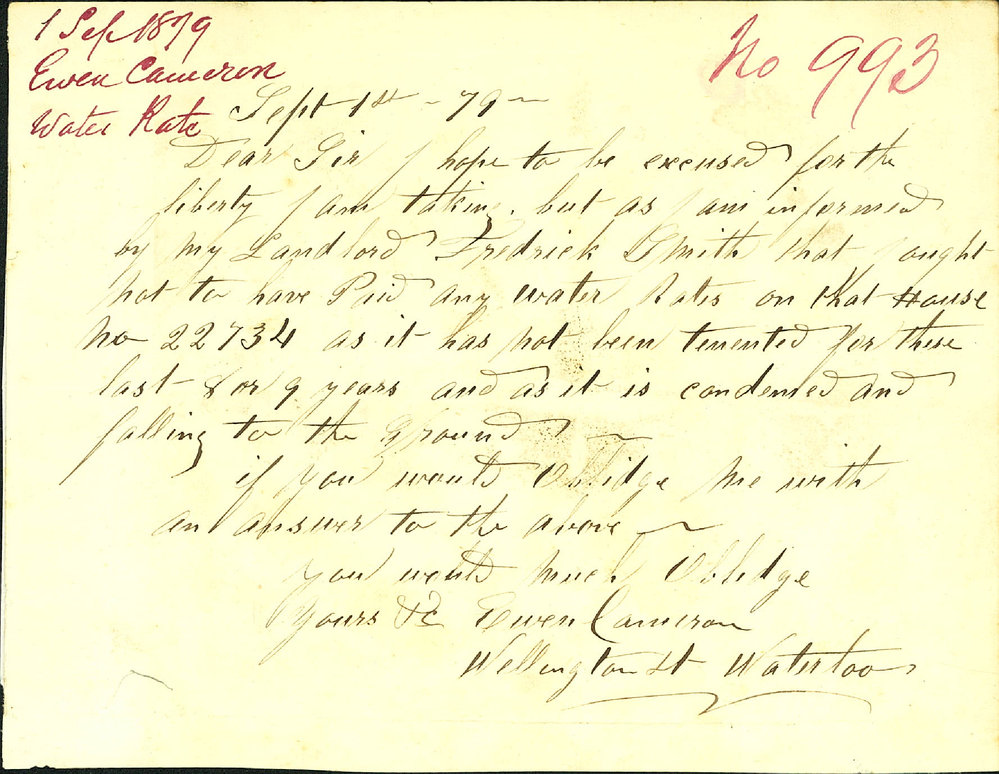 1 Sep 1879
Ewen Cameron
Water Rate
No 993
Sept 1st - 79 -
Dear Sir I hope to be excused for the
liberty I am taking. but as I am informed
by my Landlord Fredrick Smith that I ought
not to have Paid any water Rates on that House
No 22734 as it has not been tenented for these
last 8 or 9 years and as it is condemed and
falling to the Ground
if you would Oblidge me with
an answer to the above
you would much Oblidge
Yours &c Ewen Cameron
Wellington St Waterloo